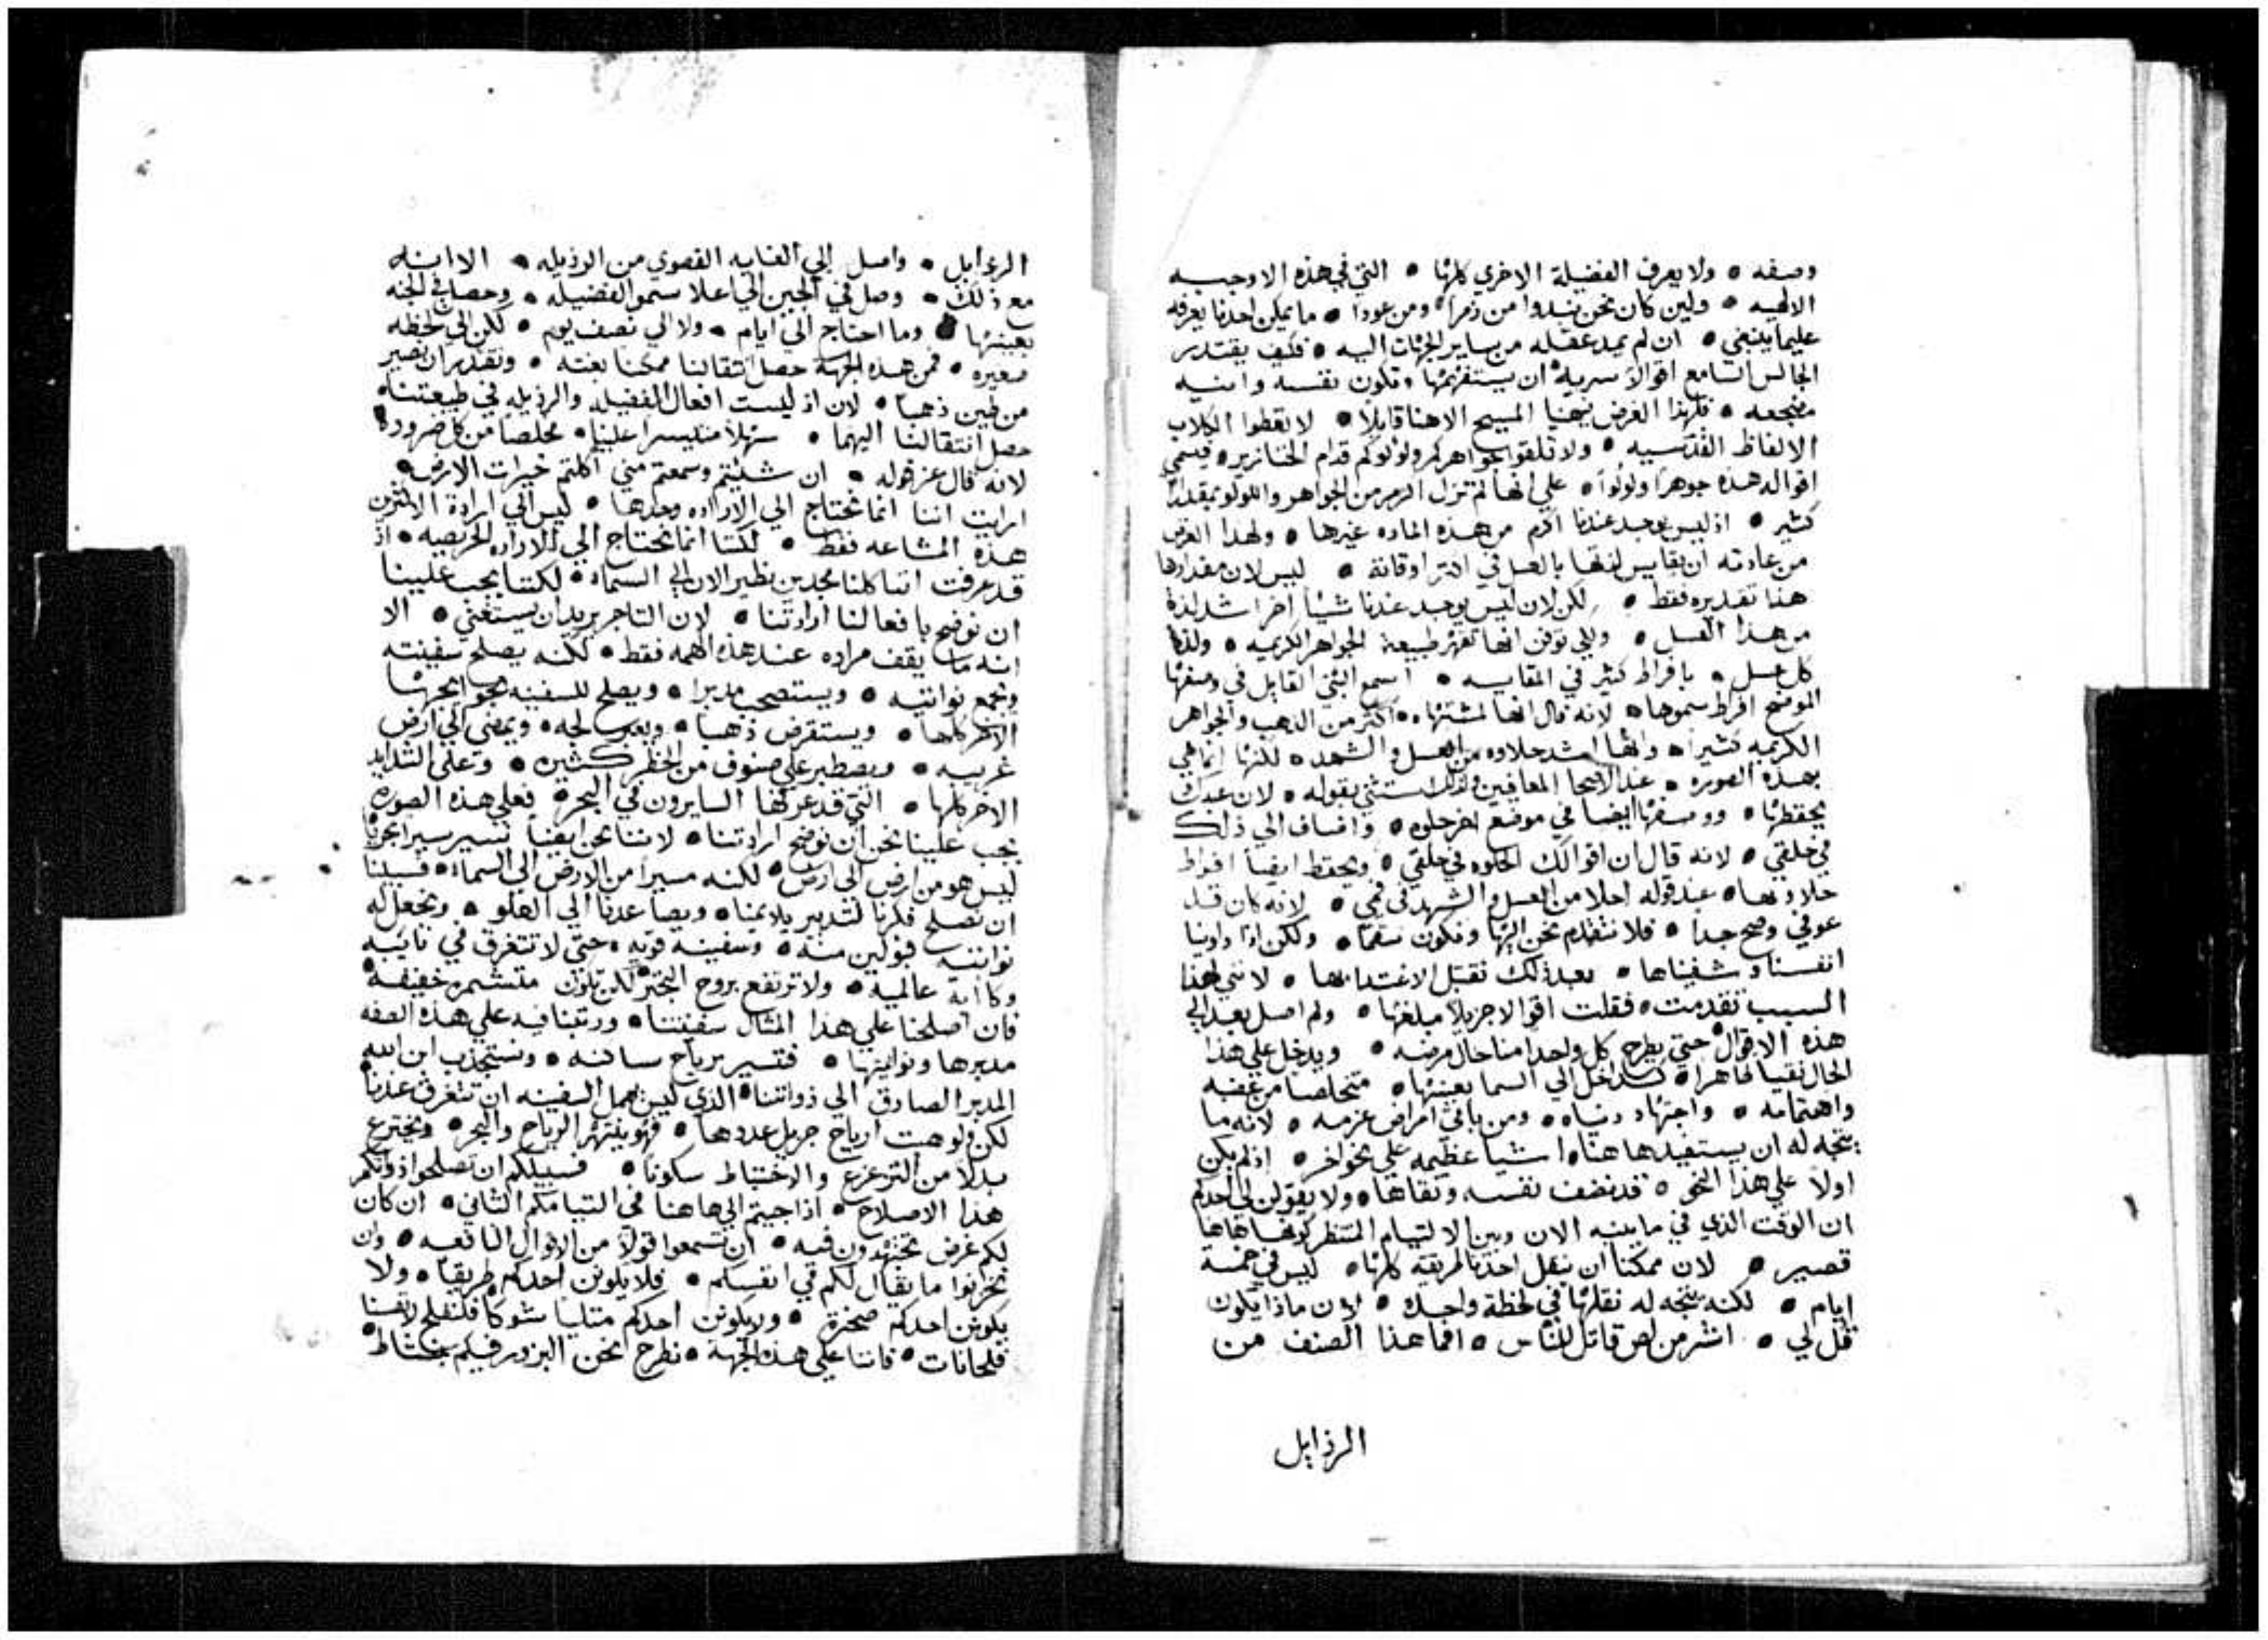 وصفه • ولا يعرف الفضيلة الاخري كلها • التي في هذه الاوجيه
الالهيه • ولين كان نحن نبدوا من زمرا ومن عودا • ما يمكن احدنا يعرفه
عليما ينبغي • ان لم يميد عقله من ساير الجهات اليه • فكيف يقتدر
الجالس السامع اقوالا سريه ان يستفهمها وتكون نفسه وانيه
مضجعه • فلهذا الغرض ينهنا المسيح الاهنا قايلا • لا تعطوا الكلاب
الالفاظ القدسيه • ولا تلقوا جواهركم ولولوكم قدام الخنازير • فيسمي
اقواله هذه جوهرا ولولوا • علي انها لم تزل اكرم من الجواهر واللولو بمقدار
كثير • اذ ليس يوجد عندنا اكرم من هذه الماده غيرها • ولهذا الغرض
من عادته ان يقايس لذتها بالعسل في اكثر اوقاته • ليس لان مقدارها
هذا تقديره فقط • لكن لان ليس يوجد عندنا شيئا اخر اشد لذة
من هذا العسل • ولكي توقن انها تقهر طبيعة الجواهر الكريمه • ولذة
كل عسل • بافراط كثير في المقايسه • اسمع النبي القايل في وصفها
الموضح افراط سموها • لانه قال انها لمشتهاه • اكثر من الذهب والجواهر
الكريمه كثيرا • وانها اشد حلاوه من العسل والشهد • لكنها انما هي
بهذه الصوره • عند الاصحا المعافين ولذلك ستثني بقوله • لان عبدك
يحفظها • ووصفها ايضا في موضع اخر حلوه • واضاف الي ذلك
في حلقي • لانه قال ان اقوالك الحلوه في حلقي • ويحفظ ايضا افراط
حلاوتها • عند قوله احلا من العسل والشهد في فمي • لانه كان قد
عوفي وصح جدا • فلا نتقدم نحن اليها ونكون سقما • ولكن اذا داوينا
انفسنا وشفيناها • بعد ذلك نقبل الاغتدا بها • لانني لهذا
السبب تقدمت • فقلت اقوالا جزيلا مبلغها • ولم اصل بعد الي
هذه الاقوال • حتي يطرح كل واحد منا حال مرضه • ويدخل علي هذا
الحال نقيا طاهرا • كداخل الي السما بعينها • متخلصا من غضبه
واهتمامه • واجتهاد دنياه • ومن باقي امراض عزمه • لانه ما
يتجه له ان يستفيد هاهنا اشيا عظيمه علي نحو اخر • اذ لم يكن
اولا علي هذا النحو • قد نضف نفسه ونقاها • ولا يقولن لي احدكم
ان الوقت الذي في ما بينه الان وبين الالتيام المنتظر كونه هاهنا
قصير • لان ممكنا ان ينقل احدنا طريقه كلها • ليس في خمسة
ايام • لكنه يتجه له نقلها في لحظة واحده • لان ماذا يكون
قل لي • اشر من لص قاتل للناس • افما هذا الصنف من
الرذايل
الرذايل • واصل الي الغايه القصوي من الرذيله • الا انه
مع ذلك • وصل في الحين الي اعلا سمو الفضيله • وحصل في الجنه
بعينها • وما احتاج الي ايام • ولا الي نصف يوم • لكن الي لحظه
صغيره • فمن هذه الجهة حصل انتقالنا ممكنا بغته • ونقدر ان نصير
من طين ذهبا • لان اذ ليست افعال الفضيله والرذيله في طبيعتنا
حصل انتقالنا اليهما • سهلا متيسرا علينا • مخلصا من كل ضروره
لانه قال عز قوله • ان شئتم وسمعتم مني اكلتم خيرات الارض •
ارايت اننا انما نحتاج الي الاراده وحدها • ليس الي ارادة الاكثرين
هذه المشاعه فقط • لكننا انما نحتاج الي الاراده الحريصه • اذ
قد عرفت اننا كلنا مجدين نظير الان الي السماء • لكننا يجب علينا
ان نوضح بافعالنا ارادتنا • لان التاجر يريد ان يستغني • الا
انه ما يقف مراده عند هذه الهمه فقط • لكنه يصلح سفينته
ويجمع نوانيه • ويستصحب مدبرا • ويصلح للسفينه حوايجها
الاخر كلها • ويستقرض ذهبا • ويعبر لجه • ويمضي الي ارض
غريبه • ويصطبر علي صنوف من الخطر كثيره • وعلي الشدايد
الاخر كلها • التي قد عرفها السايرون في البحر • فعلي هذه الصوره
يجب علينا نحن ان نوضح ارادتنا • لاننا نحن ايضا نسير سيرا بحريا
ليس هو من ارض الي ارض • لكنه مسيرا من الارض الي السماء • فسبيلنا
ان نصلح فكرنا لتدبير يلايمنا • ويصاعدنا الي العلو • ونجعل له
نواتيه قبولين منه • وسفينه قويه • حتي لا تتغرق في نايبه
وكاابة عالميه • ولا ترتفع بروح البختر • لكن تكون متشمره خفيفه
فان اصلحنا علي هذا المثال سفينتنا • ورتبنا فيه علي هذه الصفه
مدبرها ونواتيها • فتسير برياح ساكنه • ونستجذب ابن الله
المدبر الصادق الي ذواتنا • الذي ليس يهمل السفينه ان تتغرق عندنا
لكن ولو هبت ارياح جزيل عددها • فهو ينتهر الرياح والبحر • ويخترع
بدلا من التزعزع والاختباط سكونا • فسبيلكم ان تصلحوا ذواتكم
هذا الاصلاح • اذا جيتم الي هاهنا في التيامكم الثاني • ان كان
لكم غرض تجتهدون فيه • ان تسمعوا قولا من الاقوال النافعه • وان
تخزنوا ما يقال لكم في انفسكم • فلا يكونن احدكم طريقا • ولا
يكونن احدكم صخرة • ولا يكونن احدكم مثلبا شوكا فلنفلح لانفسنا
فلحانات • فاننا علي هذه الجهة • نطرح نحن البزور فيكم بنشاط •